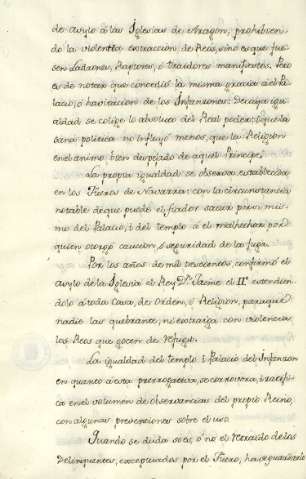 de asylo á las Iglesias de Aragon, prohibien
do la violenta extraccion de Reos, sino es que fue
sen Ladrones, Raptores, ó traidores manifiestos. Pero
es de notar que concedió la misma gracia al Pa
lacio, ó havitacion de los Infanzones: De cuya igu
aldad se colige lo absoluto del Real poder: i que la
sana politica no influyó menos, que la Religion
en el animo bien despejado de aquel Principe.
La propia igualdad se observa establecida
en los Fueros de Navarra: con la circunstancia
notable de que puede el fiador sacar por si mis
mo del Palacio, i del templo á el malhechor por
quien otorgó caucion, ó seguridad de la fuga.
Por los años de mil trescientos, confirmó el
asylo de la Iglesia el Rey Dn. Jaime el II. extendien
dolo á toda Casa, de Orden, ó Religion, para que
nadie las quebrante, ni extraiga con violencia
los Reos que gocen de refugio.
La igualdad del templo i Palacio del Infanzon
en quanto á esta prerrogativa, se corrovora, i ratifi
ca en el volumen de observancias del propio Reino,
con algunas prevenciones sobre el uso.
Quando se duda si es, ó no el
Delinquentes, exceptuados por el Fuero, ha de guardarsele